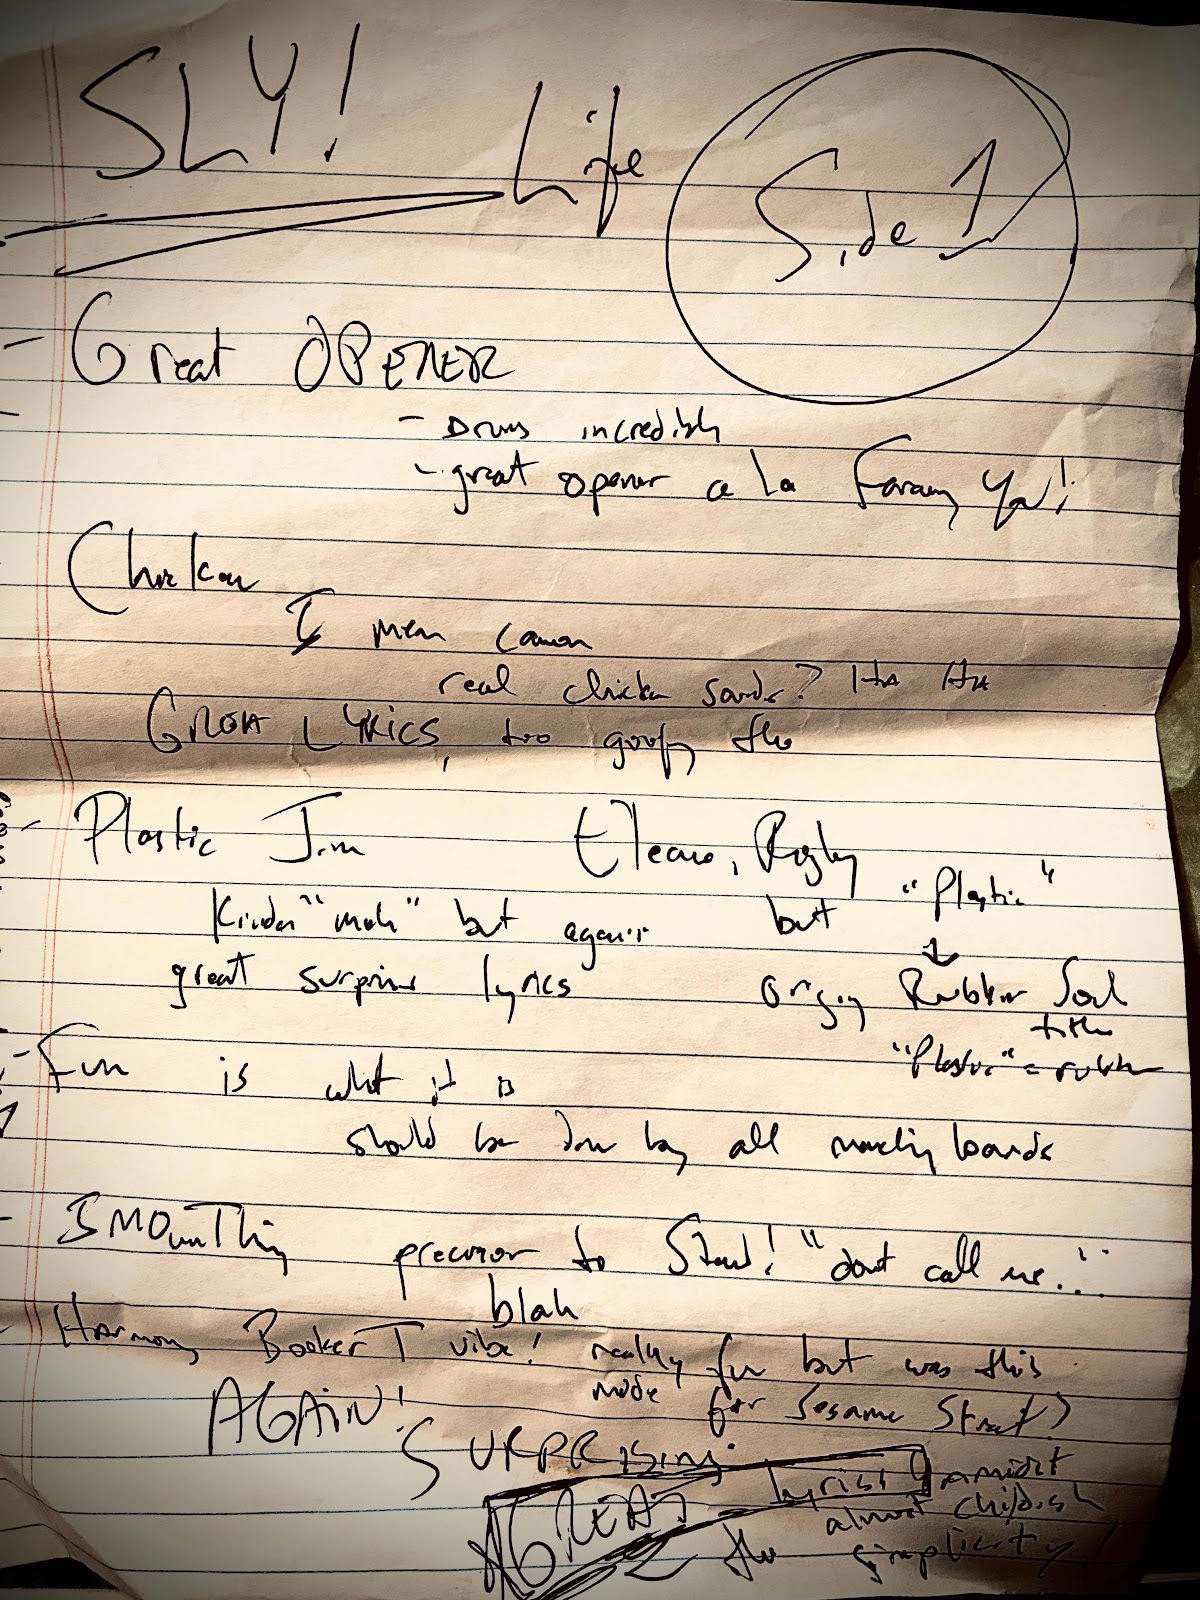 SLY! Life
Side 1
- Great OPENER
- Drums incredible
- great opener a la
Chicken
I mean common
real chicken sounds? HA HA
GREAT LYRICS, too goofy tho
- Plastic Jim
Eleanor Rigby
Kinda "meh" but again
great surprise lyrics
but "Plastic"
Rubber Soul
title
"Plastic" = rubber
- Fun is what it is
should be done by all marching bands
precursor to Stand! "dont call me.."
blah
- Harmony Booker T vibe! really fun but was this
made for Sesame Street?
AGAIN! SURPRISING
GREAT lyrics amidst
the almost childish
simplicity!